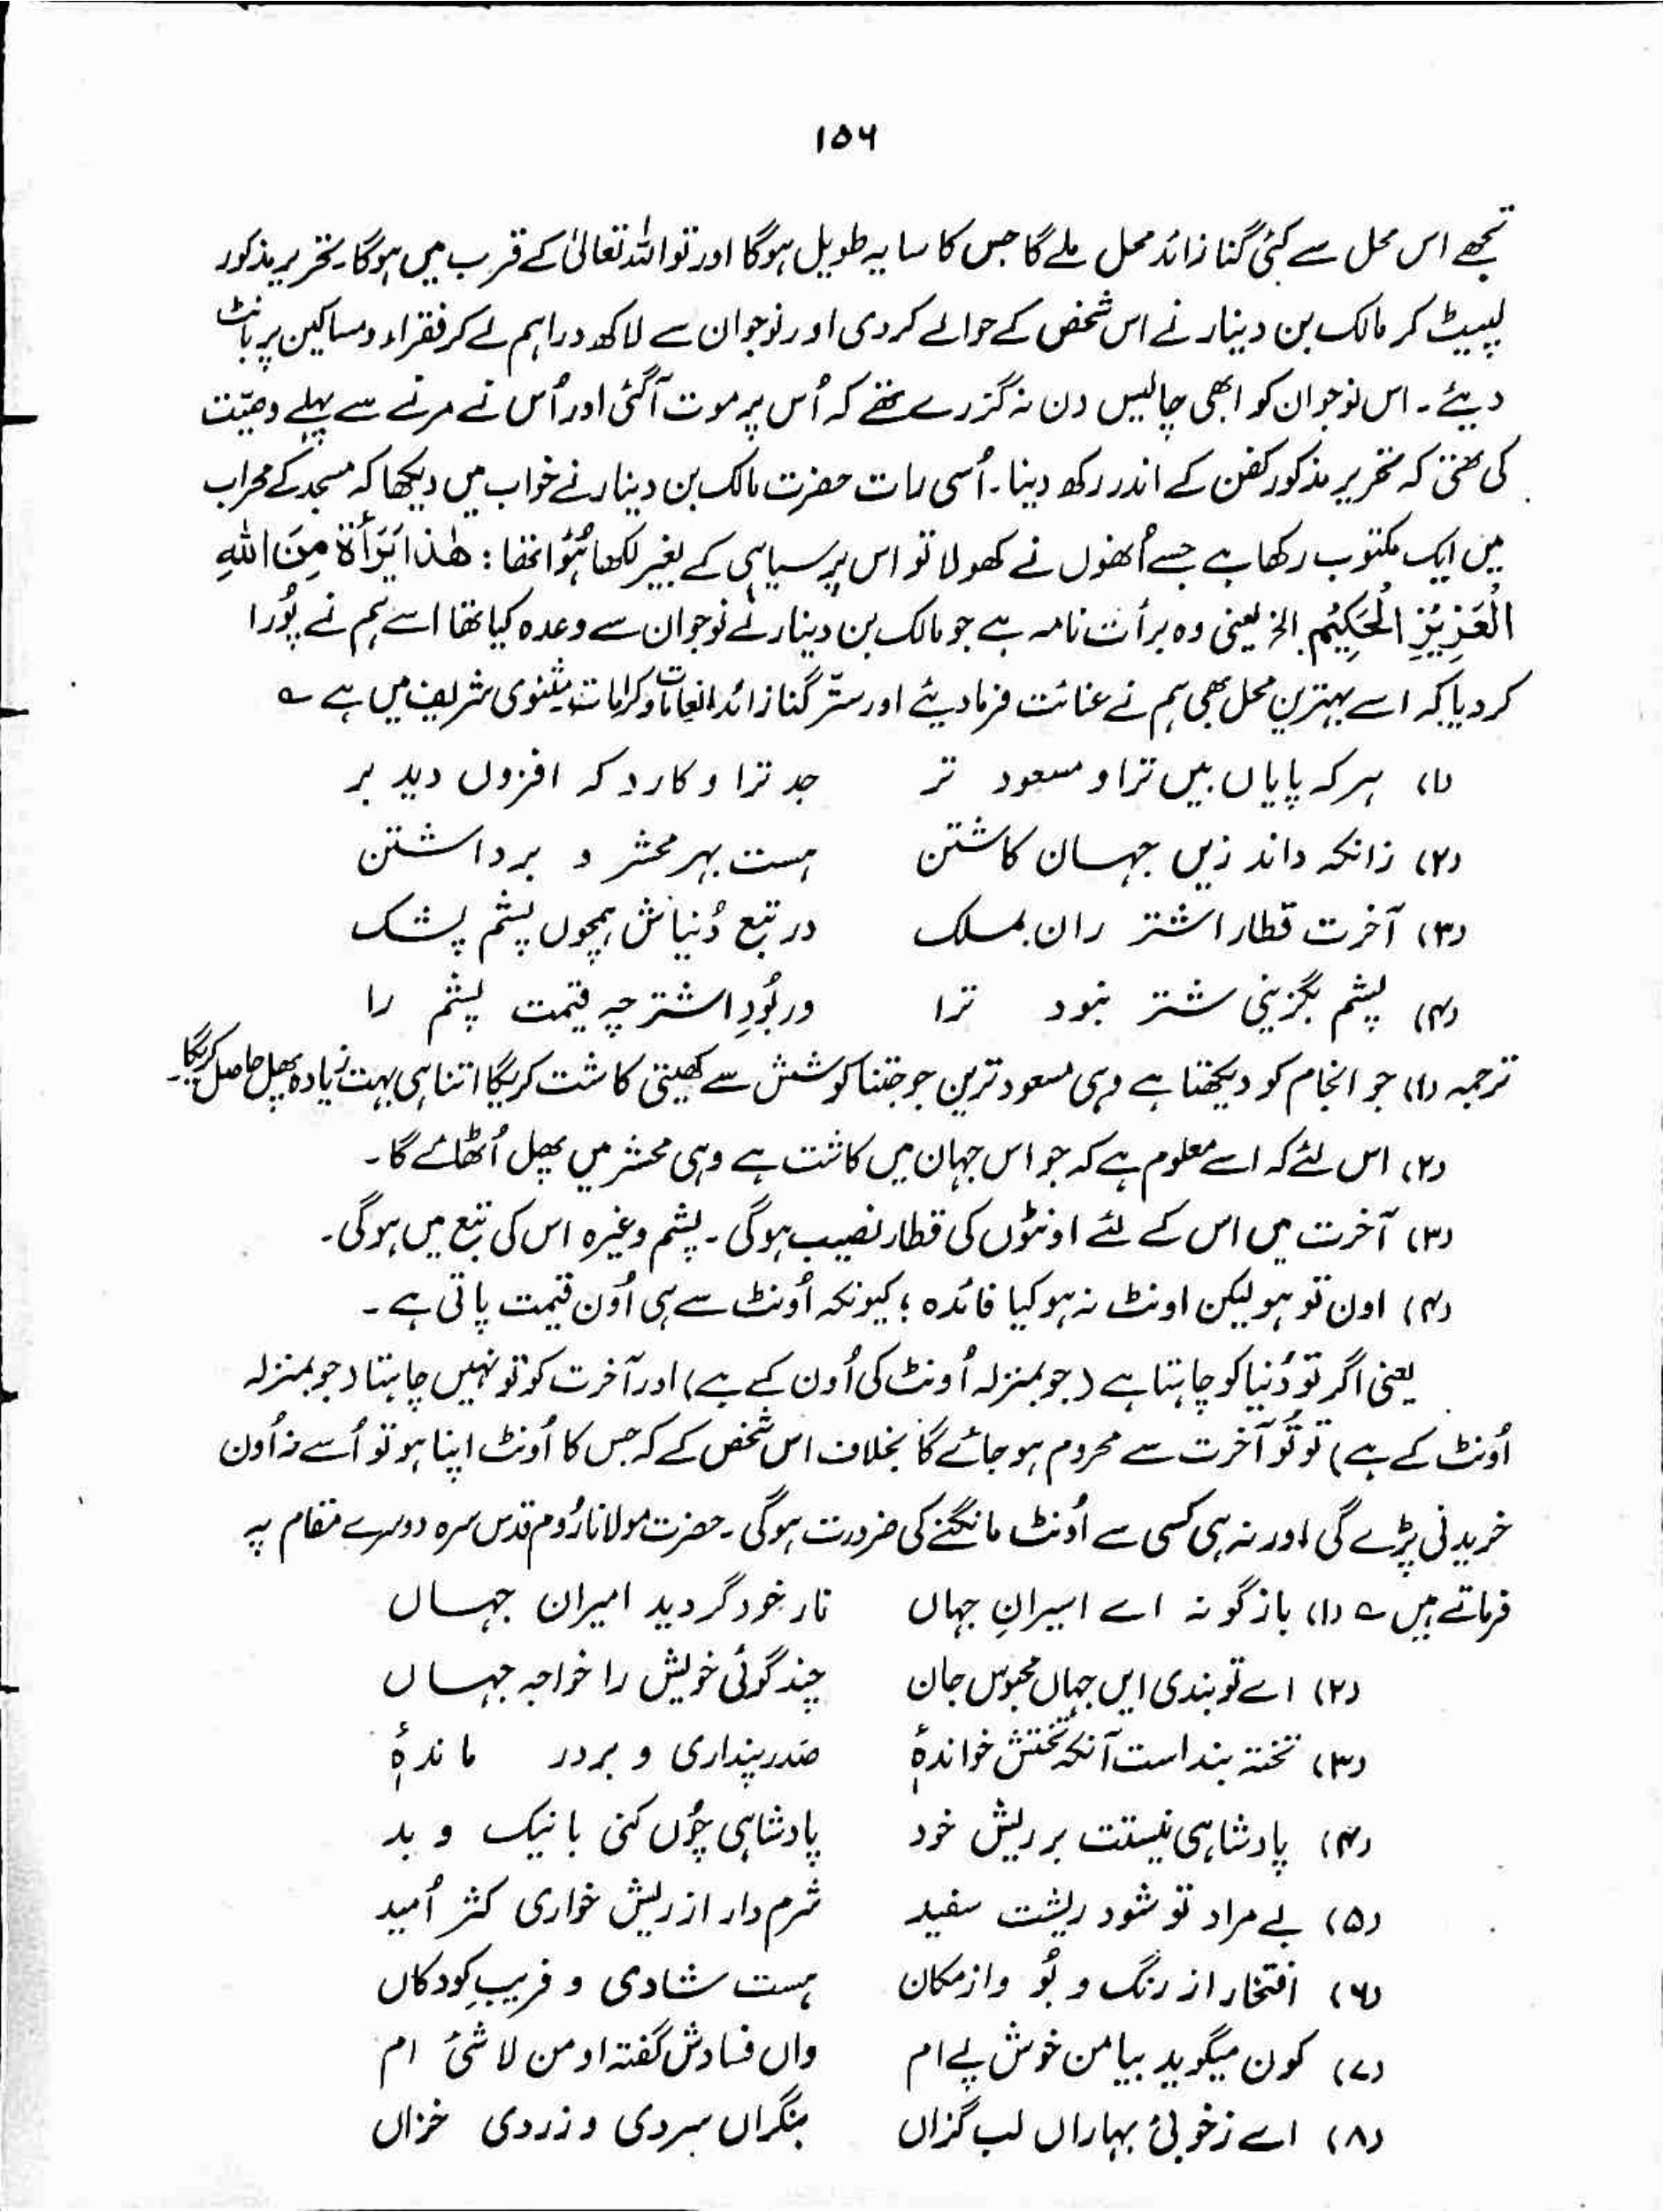 ۱۵۶
تجھے اس محل سے کئی گنا زائد محل ملے گا جس کا سایہ طویل ہوگا اور تو اللہ تعالیٰ کے قرب میں ہوگا۔ تحریر مذکور
لپیٹ کر مالک بن دینار نے اس شخص کے حوالے کردی اور نوجوان سے لاکھ دراہم لے کر فقراء ومساکین پر بانٹ
دیئے۔ اس نوجوان کو ابھی چالیس دن نہ گزرے تھے کہ اُس پر موت آگئی اور اُس نے مرنے سے پہلے وصیّت
کی تھی کہ تحریر مذکور کفن کے اندر رکھ دینا۔ اُسی رات حضرت مالک بن دینار نے خواب میں دیکھا کہ مسجد کے محراب
میں ایک مکتوب رکھا ہے جسے اُنھوں نے کھولا تو اس پر سیاہی کے بغیر لکھا ہُوا تھا : ھٰذَا بَرَأَۃٌ مِنَ اللهِ
الْعَزِیْزِ الْحَکِیْمِ الخ یعنی وہ برأت نامہ ہے جو مالک بن دینار نے نوجوان سے وعدہ کیا تھا اسے ہم نے پُورا
کردیا کہ اسے بہترین محل بھی ہم نے عنائت فرمادیئے اور ستّر گنا زائد انعامات وکرامات، مثنوی شریف میں ہے ؎
(۱) ہر کہ پایاں بیں ترا و مسعود تر جد ترا و کارد کہ افزوں دید بر
(۲) زانکہ داند زیں جہان کاشتن ہست بہر محشر و برداشتن
(۳) آخرت قطار اشتر ران بملک در تبع دُنیاش ہمچوں پشم پشک
(۴) پشم بگزینی شتر نبود ترا ور بُودِ اشتر چہ قیمت پشم را
ترجمہ (۱) جو انجام کو دیکھتا ہے وہی مسعود ترین جو جتنا کوشش سے کھیتی کاشت کریگا اتنا ہی بہت زیادہ پھل حاصل کریگا۔
(۲) اس لئے کہ اسے معلوم ہے کہ جو اس جہان میں کاشت ہے وہی محشر میں پھل اُٹھائے گا۔
(۳) آخرت میں اس کے لئے اونٹوں کی قطار نصیب ہوگی۔ پشم وغیرہ اس کی تبع میں ہوگی۔
(۴) اون تو ہو لیکن اونٹ نہ ہو کیا فائدہ ؛ کیونکہ اُونٹ سے ہی اُون قیمت پاتی ہے۔
یعنی اگر تو دُنیا کو چاہتا ہے (جو بمنزلہ اُونٹ کی اُون کے ہے) اور آخرت کو تو نہیں چاہتا (جو بمنزلہ
اُونٹ کے ہے) تو تُو آخرت سے محروم ہو جائے گا بخلاف اس شخص کے کہ جس کا اُونٹ اپنا ہو تو اُسے نہ اُون
خریدنی پڑے گی اور نہ ہی کسی سے اُونٹ مانگنے کی ضرورت ہوگی۔ حضرت مولانا رُوم قدس سرہ دوسرے مقام پہ
فرماتے ہیں ؎ (۱) باز گونہ اے اسیرانِ جہاں نار خود گردید امیران جہاں
(۲) اے تو بندی ایں جہاں محبوس جان چند گوئی خویش را خواجہ جہاں
(۳) تختہ بند است آنکہ تختش خواندۂٖ صدر پنداری و بردر ماندۂٖ
(۴) پادشاہی نیستت بر ریش خود پادشاہی چُوں کنی با نیک و بد
(۵) بے مراد تو شود ریشت سفید شرم دار از ریش خواری کثر اُمید
(۶) افتخار از رنگ و بُو واز مکان ہست شادی و فریبِ کودکاں
(۷) کون میگوید بیا من خوش پے ام واں فسادش گفتہ او من لا شئ ام
(۸) اے ز خوبئ بہاراں لب گزاں بنگراں سردی و زردی خزاں